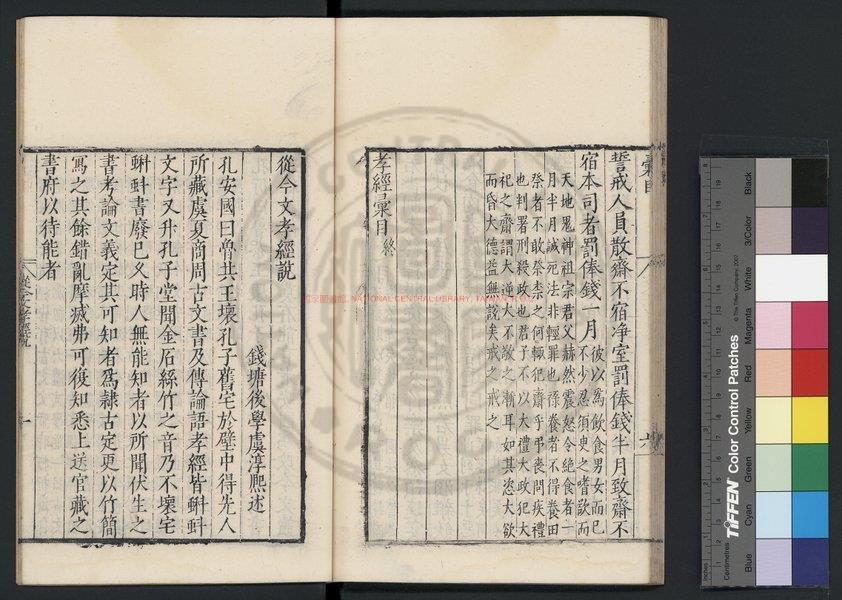 誓戒人員散齋不宿净室罰俸錢半月致齋不
宿本司者罰俸錢一月
彼以爲飲食男女而已
不少忍須臾之嗜欲而
天地鬼神祖宗君父赫然震怒令絶食者一
月半月誠死法非輕罪也祿養者不得養田
祭者不敢祭柰之何輒犯齋乎弔喪問疾禮
也判署刑殺政也君子不以大禮大政犯大
祀之齋謂大逆大不敬之漸耳如其恣大欲
而昏大德益無說矣戒之戒之
孝經彙目終
從今文孝經說
錢塘後學虞淳熙述
孔安國曰魯共王壞孔子舊宅於壁中得先人
所藏虞夏商周古文書及傳論語孝經皆蝌蚪
文字又升孔子堂聞金石絲竹之音乃不壞宅
蝌蚪書廢已乆時人無能知者以所聞伏生之
書考論文義定其可知者爲隸古定更以竹簡
寫之其餘錯亂摩滅弗可復知悉上送官藏之
書府以待能者
從今文孝經說
一
國家圖書館, NATIONAL CENTRAL LIBRARY, TAIWAN, R.O.C
Black
3/Color
White
Magenta
Red
Yellow
Green
Cyan
Blue
TIFFEN Color Control Patches
© The Tiffen Company, 2007
Centimetres
Inches